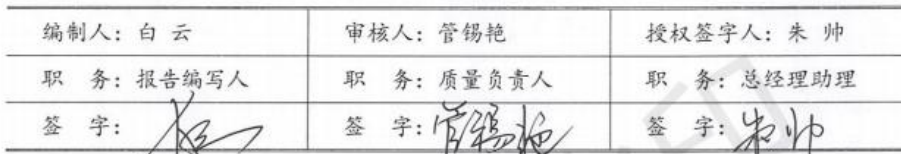 编制人：白 云 审核人：管锡艳 授权签字人：朱 帅
职 务：报告编写人 职 务：质量负责人 职 务：总经理助理
签 字： 签 字：管锡艳 签 字：朱帅